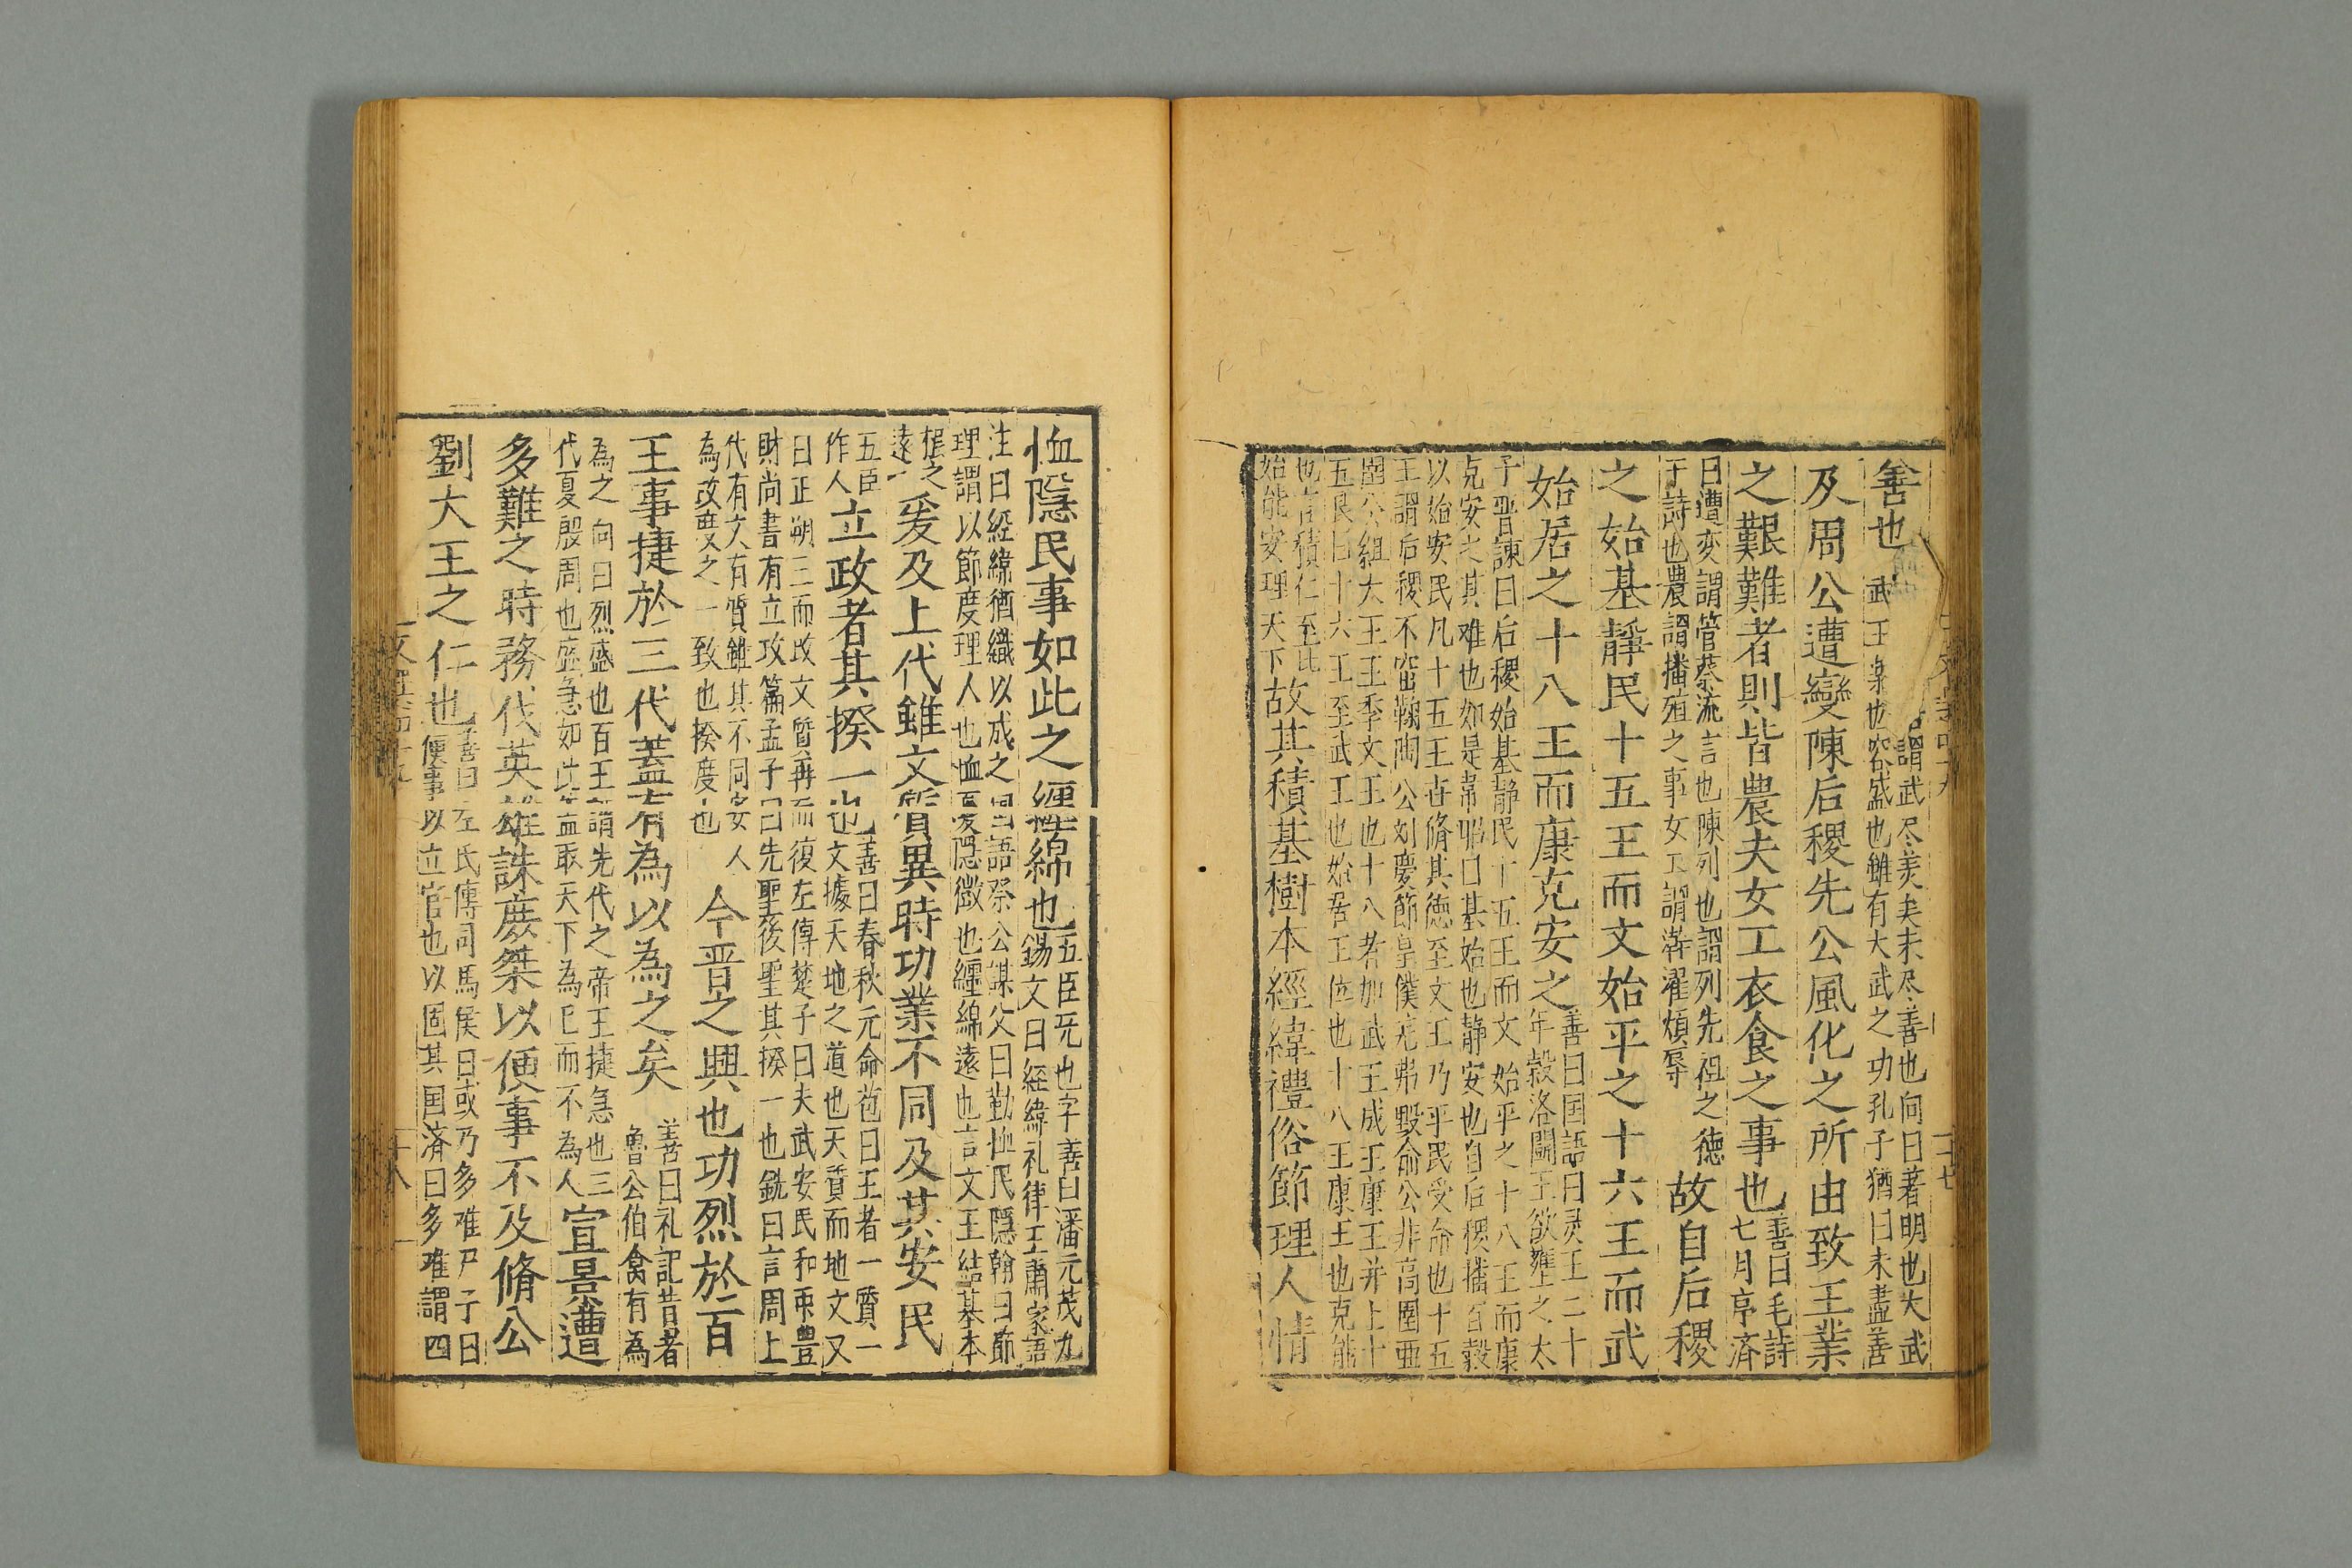 善也謂武尽美矣未尽善也向曰著明也大武
武王樂也容盛也雖有大武之功孔子猶曰未盡善
及周公遭變陳后稷先公風化之所由致王業
之艱難者則皆農夫女工衣食之事也善曰毛詩
七月序済
曰遭変謂管蔡流言也陳列也謂列先祖之徳
于詩也農謂播殖之事女工謂澣濯煩辱故自后稷
之始基靜民十五王而文始平之十六王而武
始居之十八王而康克安之善曰国語曰灵王二十
年穀洛闘王欲壅之太
子晋諫曰后稷始基静民十五王而文始平之十八王而康
克安之其难也如是韋昭曰基始也静安也自后稷播百穀
以始安民凡十五王世脩其徳至文王乃平民受命也十五
王謂后稷不窋鞠陶公刘慶節皇僕差弗毀俞公非高圉亜
圉公組大王王季文王也十八者加武王成王康王并上十
五良曰十六王至武王也始居王位也十八王康王也克能
也言積仁至此
始能安理天下故其積基樹本經緯禮俗節理人情
恤隱民事如此之纒綿也五臣旡也字善曰潘元茂九
錫文曰経緯礼律王肅家語
注曰経緯猶織以成之国語祭公謀父曰勤恤民隱翰曰節
理謂以節度理人也恤憂隱微也纒綿遠也言文王結基本
根之
遠爰及上代雖文質異時功業不同及其安民
五臣
作人立政者其揆一也善曰春秋元命苞曰王者一質一
文據天地之道也天質而地文又
曰正朔三而改文質再而復左傳楚子曰夫武安民和衆豊
財尚書有立政篇孟子曰先聖後聖其揆一也銑曰言周上
代有文有質雖其不同安人
為政度之一致也揆度也今晋之興也功烈於百
王事捷於三代蓋有為以為之矣善曰礼記昔者
魯公伯禽有為
為之向曰烈盛也百王謂先代之帝王捷急也三
代夏殷周也盛急如此
敢天下為王而不為人宣景遭
多難之時務伐英雄誅庶桀以便事不及脩公
劉大王之仁也善曰左氏傳司馬侯曰或乃多难尸子曰
便事以立官也以固其国済曰多难謂四